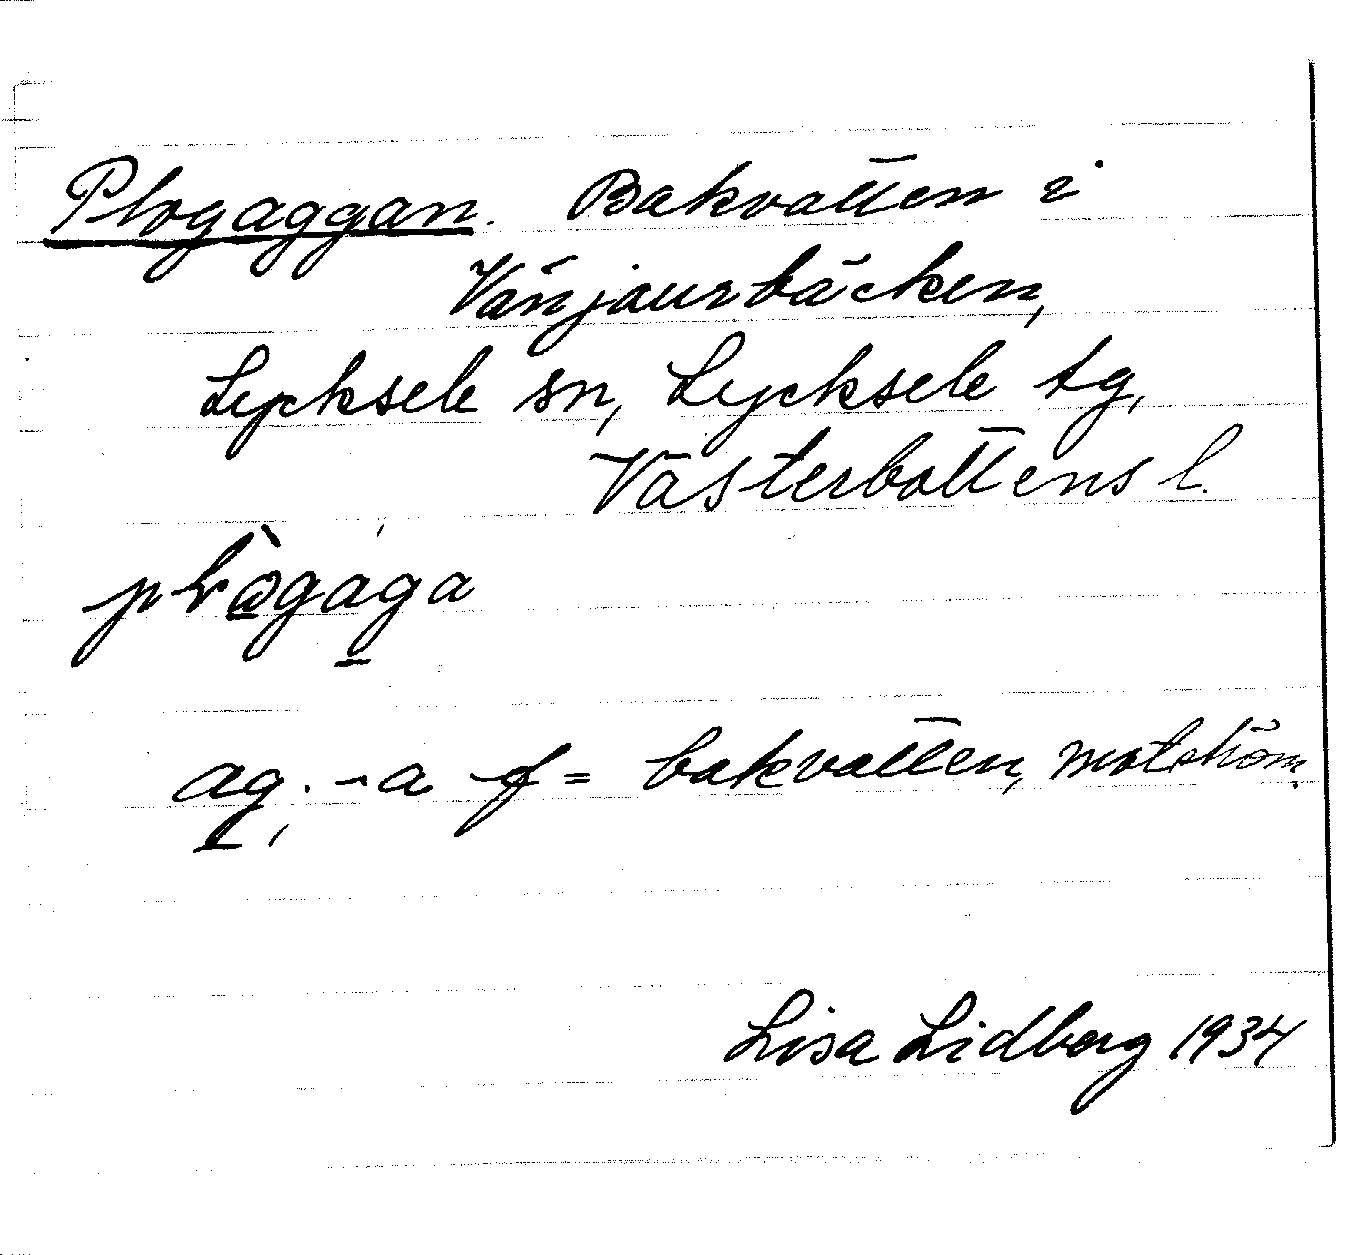 Plogaggan. Bakvatten i
Vänjaurbäcken,
Lycksele sn, Lycksele tg,
Västerbottens l.
ag, -a f = bakvatten, motström.
Lisa Lidberg 1934